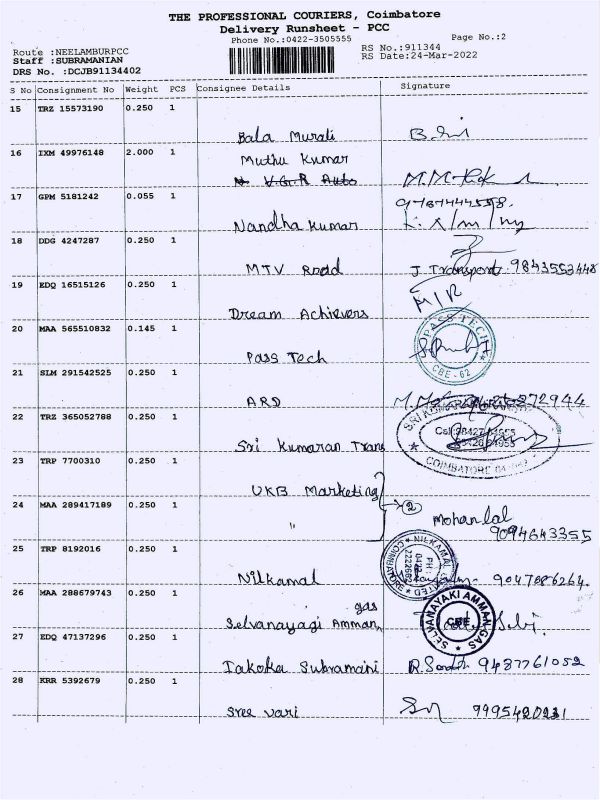 THE PROFESSIONAL COURIERS, Coimbatore
Delivery Runsheet - PCC
Phone No.:0422-3505555
Page No.:2
Route :NEELAMBURPCC
RS No.:911344
Staff :SUBRAMANIAN
RS Date:24-Mar-2022
DRS No. :DCJB91134402
S No Consignment No Weight PCS Consignee Details Signature
15 TRZ 15573190 0.250 1
Bala Murali
16 IXM 49976148 2.000 1
Muthu Kumar
V.G.R Auto
17 GPM 5181242 0.055 1
Nandha Kumar
18 DDG 4247287 0.250 1
MTV Road J. Transport 9843553448
19 EDQ 16515126 0.250 1
M/R
Dream Achievers
20 MAA 565510832 0.145 1
PASS TECH
CBE - 62
Pass Tech
21 SLM 291542525 0.250 1
ARD
22 TRZ 365052788 0.250 1
COIMBATORE
Sri Kumaran Trans
23 TRP 7700310 0.250 1
UKB Marketing
24 MAA 289417189 0.250 1
2
"
Mohanlal
9094643355
25 TRP 8192016 0.250 1
NILKAMAL LIMITED
COIMBATORE
PH :
0422
Nilkamal 9047086264
26 MAA 288679743 0.250 1
SELVANAYAKI AMMAN GAS
CBE
gas
Selvanayagi Amman
27 EDQ 47137296 0.250 1
Takoka Subramani 9487761052
28 KRR 5392679 0.250 1
Sree Vari 9995420231